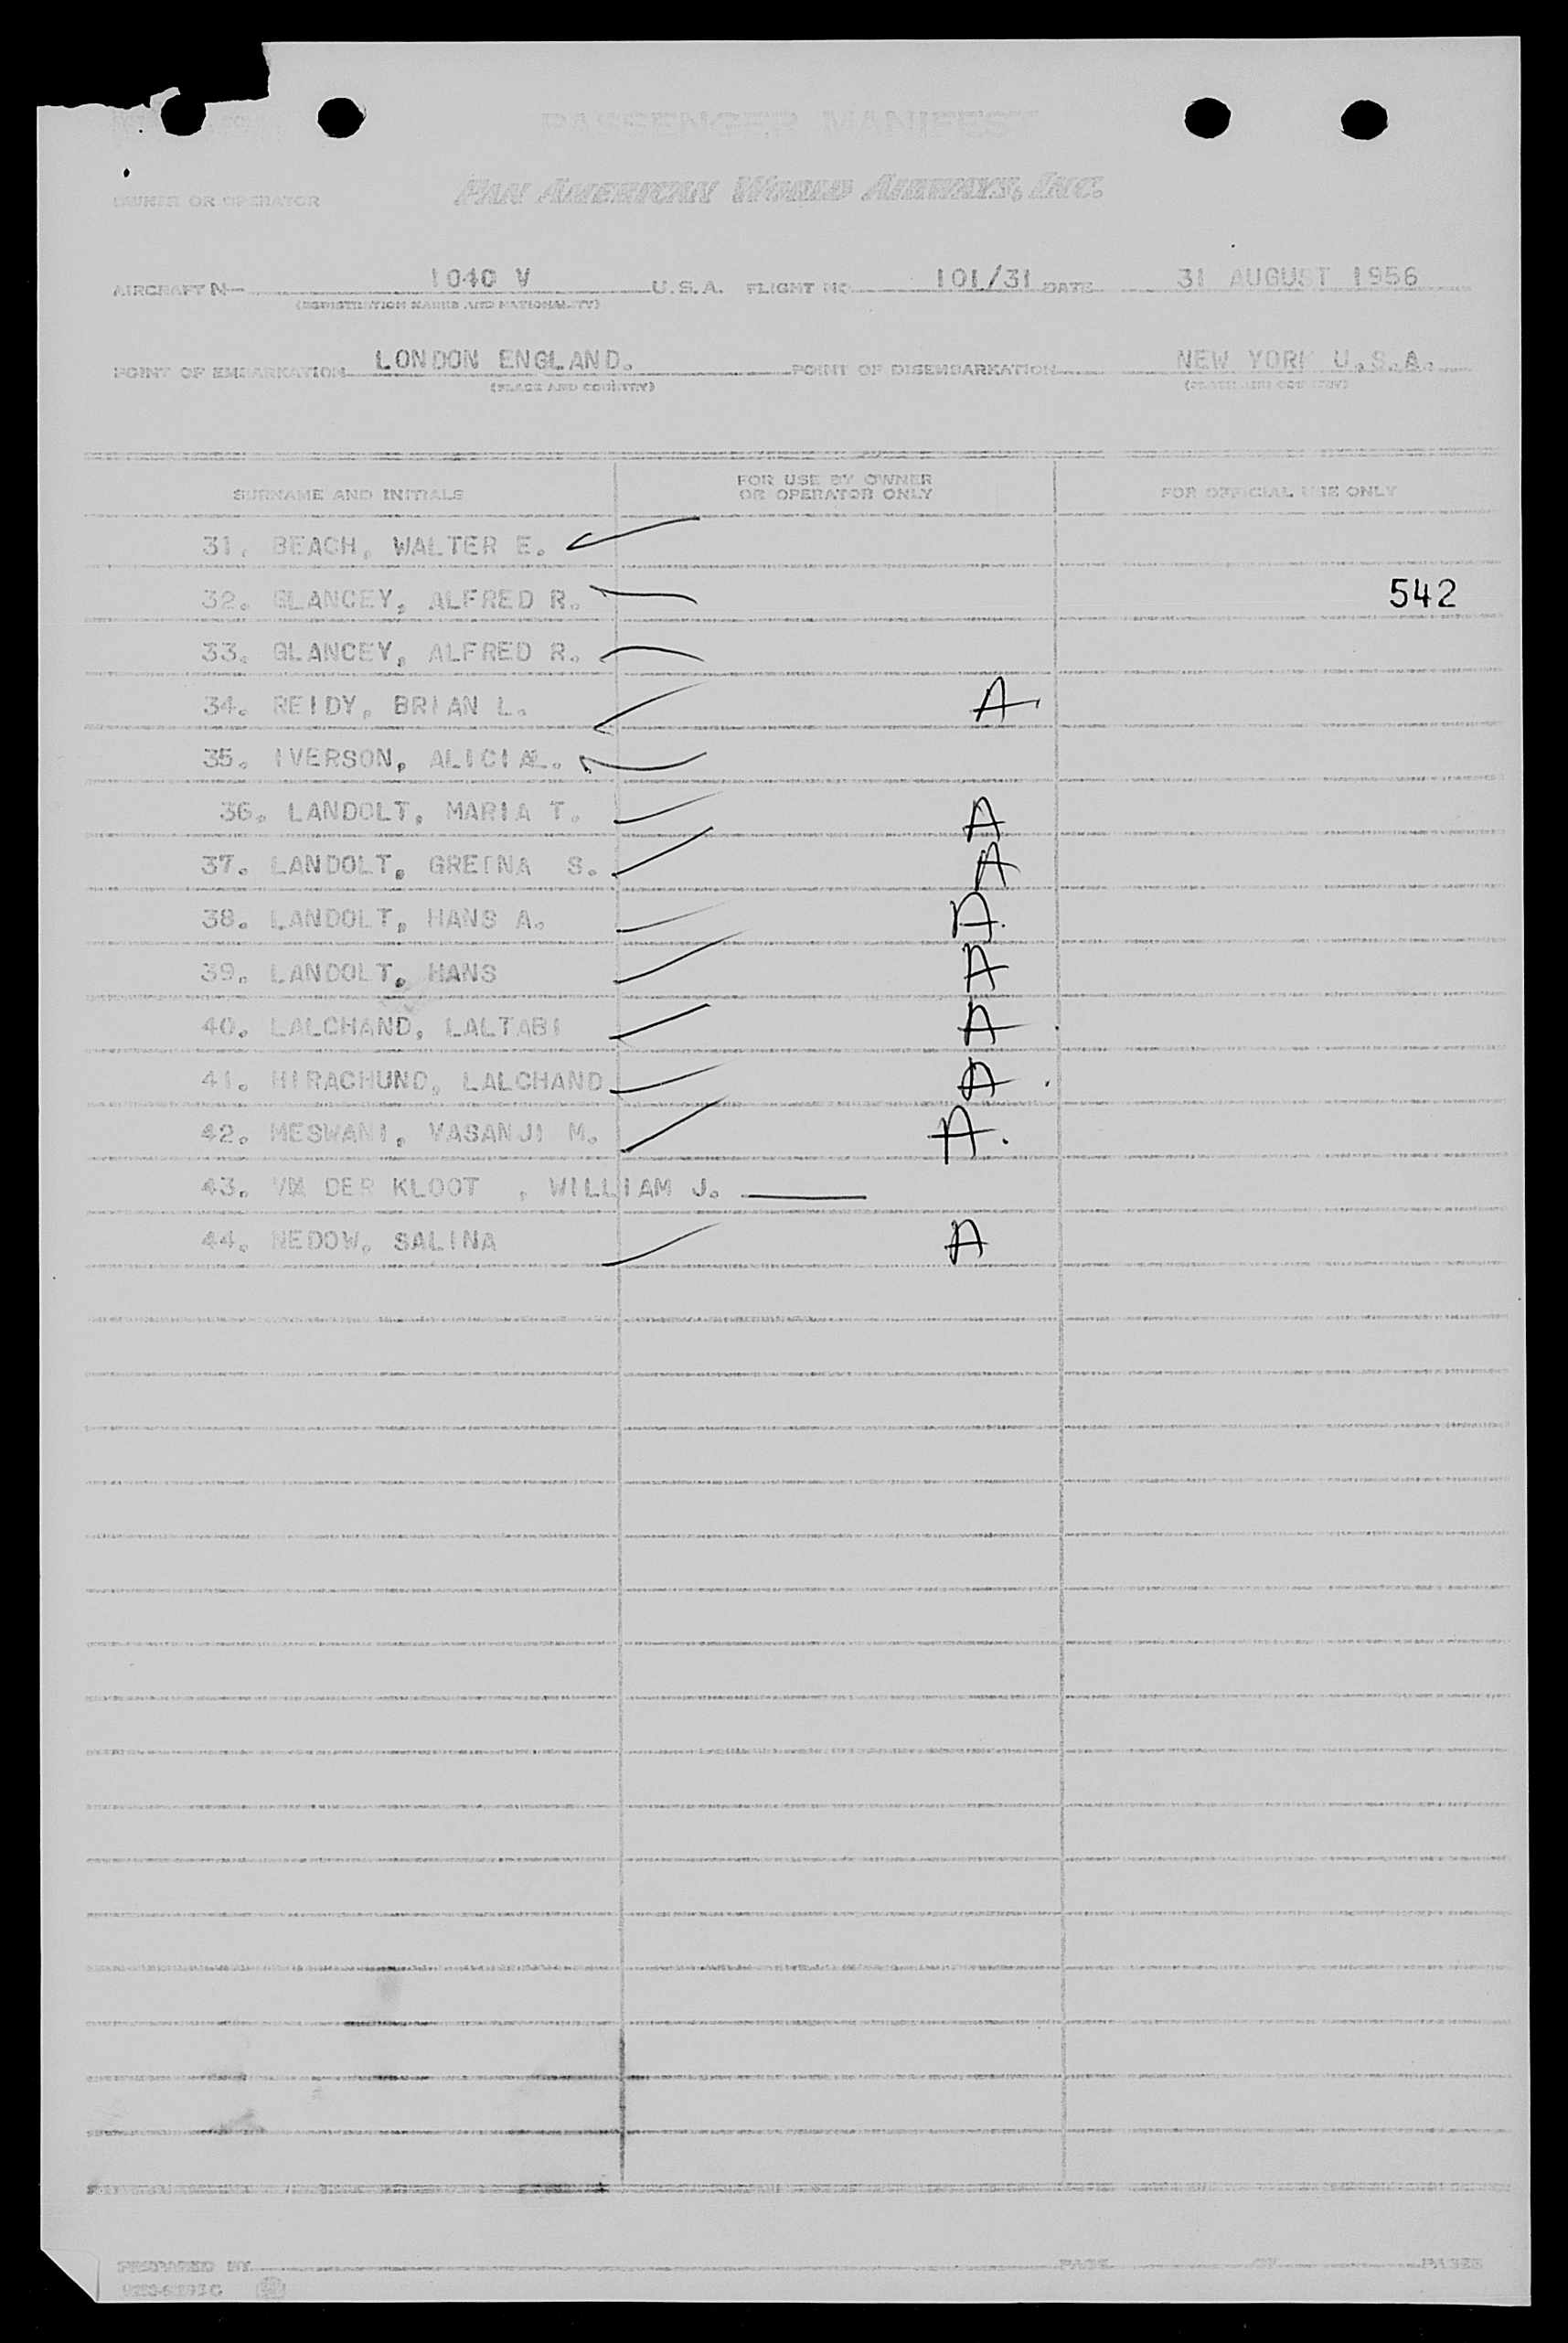 PASSENGER MANIFEST
OWNER OR OPERATOR PAN AMERICAN WORLD AIRWAYS, INC.
AIRCRAFT N- 1040 V U.S.A. FLIGHT NO 101/31 DATE 31 AUGUST 1956
(REGISTRATION MARKS AND NATIONALITY)
POINT OF EMBARKATION LONDON ENGLAND. POINT OF DISEMBARKATION NEW YORK U.S.A.
(PLACE AND COUNTRY) (PLACE AND COUNTRY)
SURNAME AND INITIALS FOR USE BY OWNER OR OPERATOR ONLY FOR OFFICIAL USE ONLY
31. BEACH, WALTER E.
32. GLANCEY, ALFRED R. 542
33. GLANCEY, ALFRED R.
34. REIDY, BRIAN L. A
35. IVERSON, ALICIA L.
36. LANDOLT, MARIA T. A
37. LANDOLT, GRETNA S. A
38. LANDOLT, HANS A. A.
39. LANDOLT, HANS A
40. LALCHAND, LALTABI A
41. HIRACHUND, LALCHAND A
42. MESWANI, VASANJI M. A.
43. DER KLOOT , WILLIAM J.
44. NEDOW, SALINA A
PREPARED BY PAGE OF PAGES